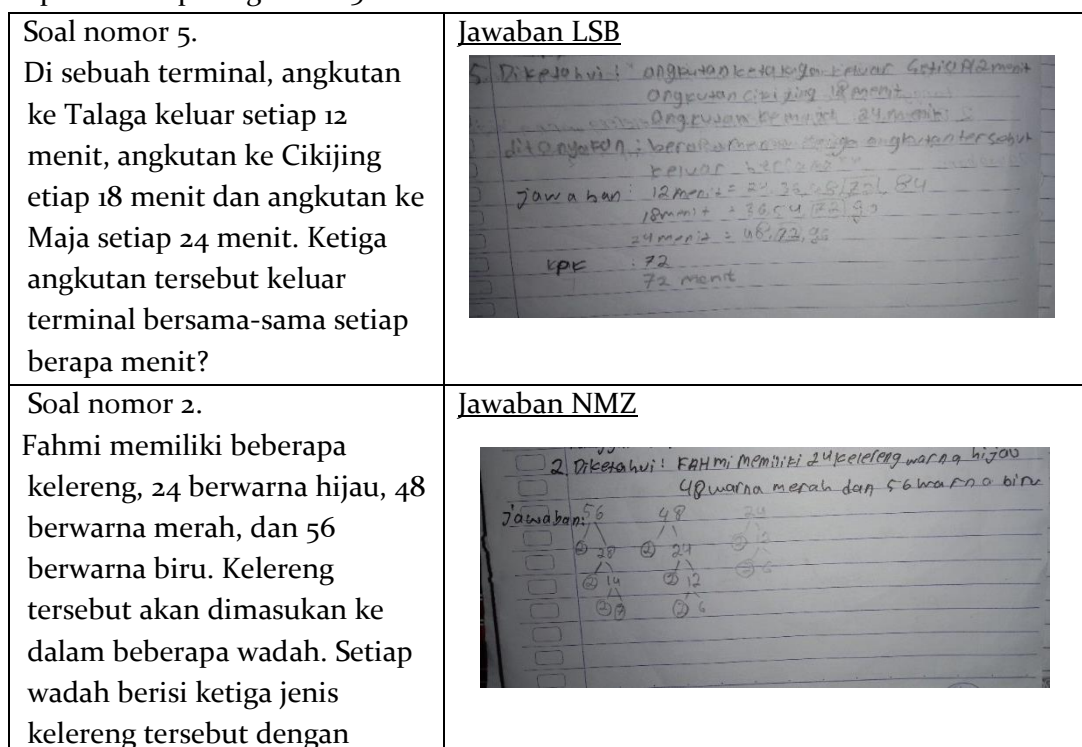 Soal nomor 5.
Di sebuah terminal, angkutan
ke Talaga keluar setiap 12
menit, angkutan ke Cikijing
etiap 18 menit dan angkutan ke
Maja setiap 24 menit. Ketiga
angkutan tersebut keluar
terminal bersama-sama setiap
berapa menit?
Jawaban LSB
5. Diketahui : angkutan ketalaga keluar setiap 12 menit
angkutan cikijing 18 menit
angkutan ke 24 menit
ditanyakan : angkutan tersebut
keluar
jawaban : 12 menit = 24, 36, 48, 72, 84
18 menit = 36, 54, 72, 90
24 menit = 48, 72,
KPK : 72
72 menit
Soal nomor 2.
Fahmi memiliki beberapa
kelereng, 24 berwarna hijau, 48
berwarna merah, dan 56
berwarna biru. Kelereng
tersebut akan dimasukan ke
dalam beberapa wadah. Setiap
wadah berisi ketiga jenis
kelereng tersebut dengan
Jawaban NMZ
2 Diketahui : FAHmi memiliki 24 kelereng warna hijau
48 warna merah dan 56 warna biru
Jawaban: 56 48 24
2 28 2 24 2 12
2 14 2 12 2 6
2 7 2 6